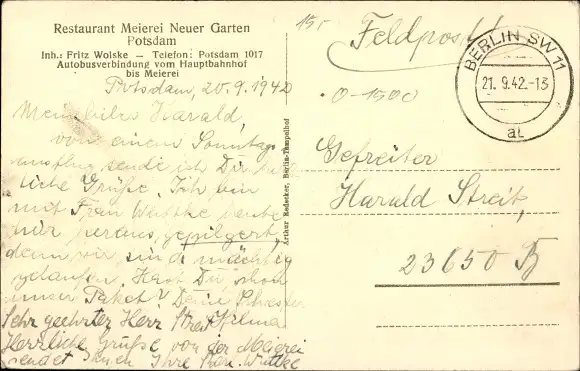 Restaurant Meierei Neuer Garten
Potsdam
Inh.: Fritz Wolske — Telefon: Potsdam 1017
Autobusverbindung vom Hauptbahnhof
bis Meierei
Potsdam, 20.9.1942
Mein lieber Harald,
von einem Sonntags
ausflug sende ich Dir
liche Grüße. Ich bin
mit Frau Wuttke heute
hier heraus gepilgert,
denn wir sind mächtig
gelaufen. Hast Du schon
unser Paket? Deine Schwester
Hilma
Sehr geehrter Herr Streit,
Herzliche Grüße von der Meierei
sendet Ihnen Ihre Frau Wuttke
Arthur Redecker, Berlin-Tempelhof
15
Feldpost
BERLIN SW 11
21.9.42.-13
at
0-1500
Gefreiter
Harald Streit,
23650 B